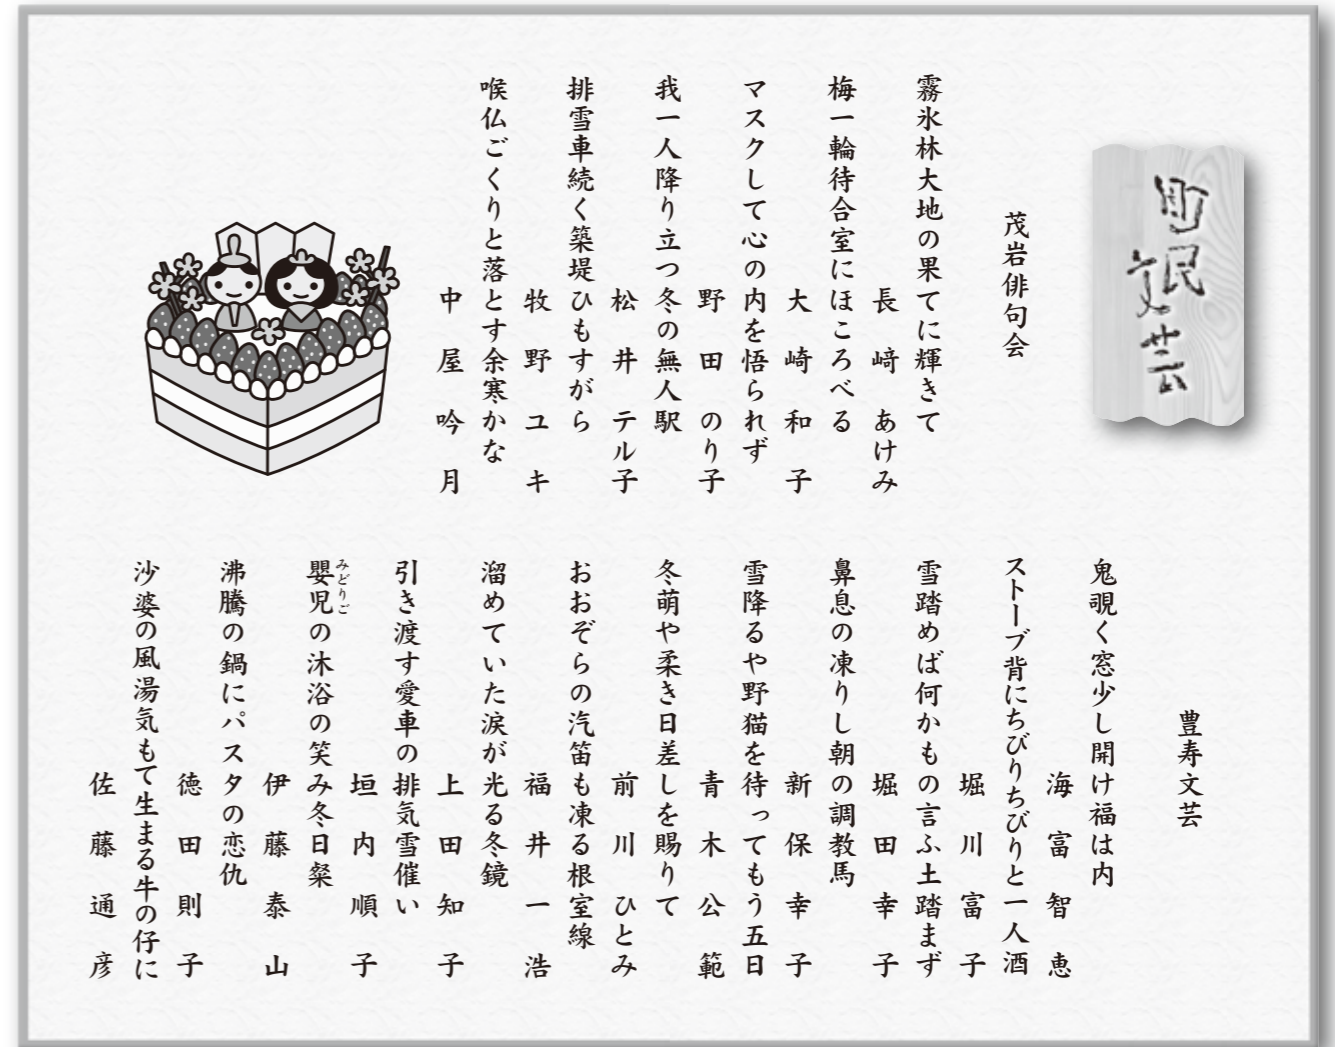 町民文芸
茂岩俳句会
霧氷林大地の果てに輝きて
長﨑あけみ
梅一輪待合室にほころべる
大崎和子
マスクして心の内を悟られず
野田のり子
我一人降り立つ冬の無人駅
松井テル子
排雪車続く築堤ひもすがら
牧野ユキ
喉仏ごくりと落とす余寒かな
中屋吟月
豊寿文芸
鬼覗く窓少し開け福は内
海富智恵
ストーブ背にちびりちびりと一人酒
堀川富子
雪踏めば何かもの言ふ土踏まず
堀田幸子
鼻息の凍りし朝の調教馬
新保幸子
雪降るや野猫を待ってもう五日
青木公範
冬萌や柔き日差しを賜りて
前川ひとみ
おおぞらの汽笛も凍る根室線
福井一浩
溜めていた涙が光る冬鏡
上田知子
引き渡す愛車の排気雪催い
垣内順子
嬰児の沐浴の笑み冬日燦
みどりご
伊藤泰山
沸騰の鍋にパスタの恋仇
徳田則子
沙婆の風湯気もて生まる牛の仔に
佐藤通彦